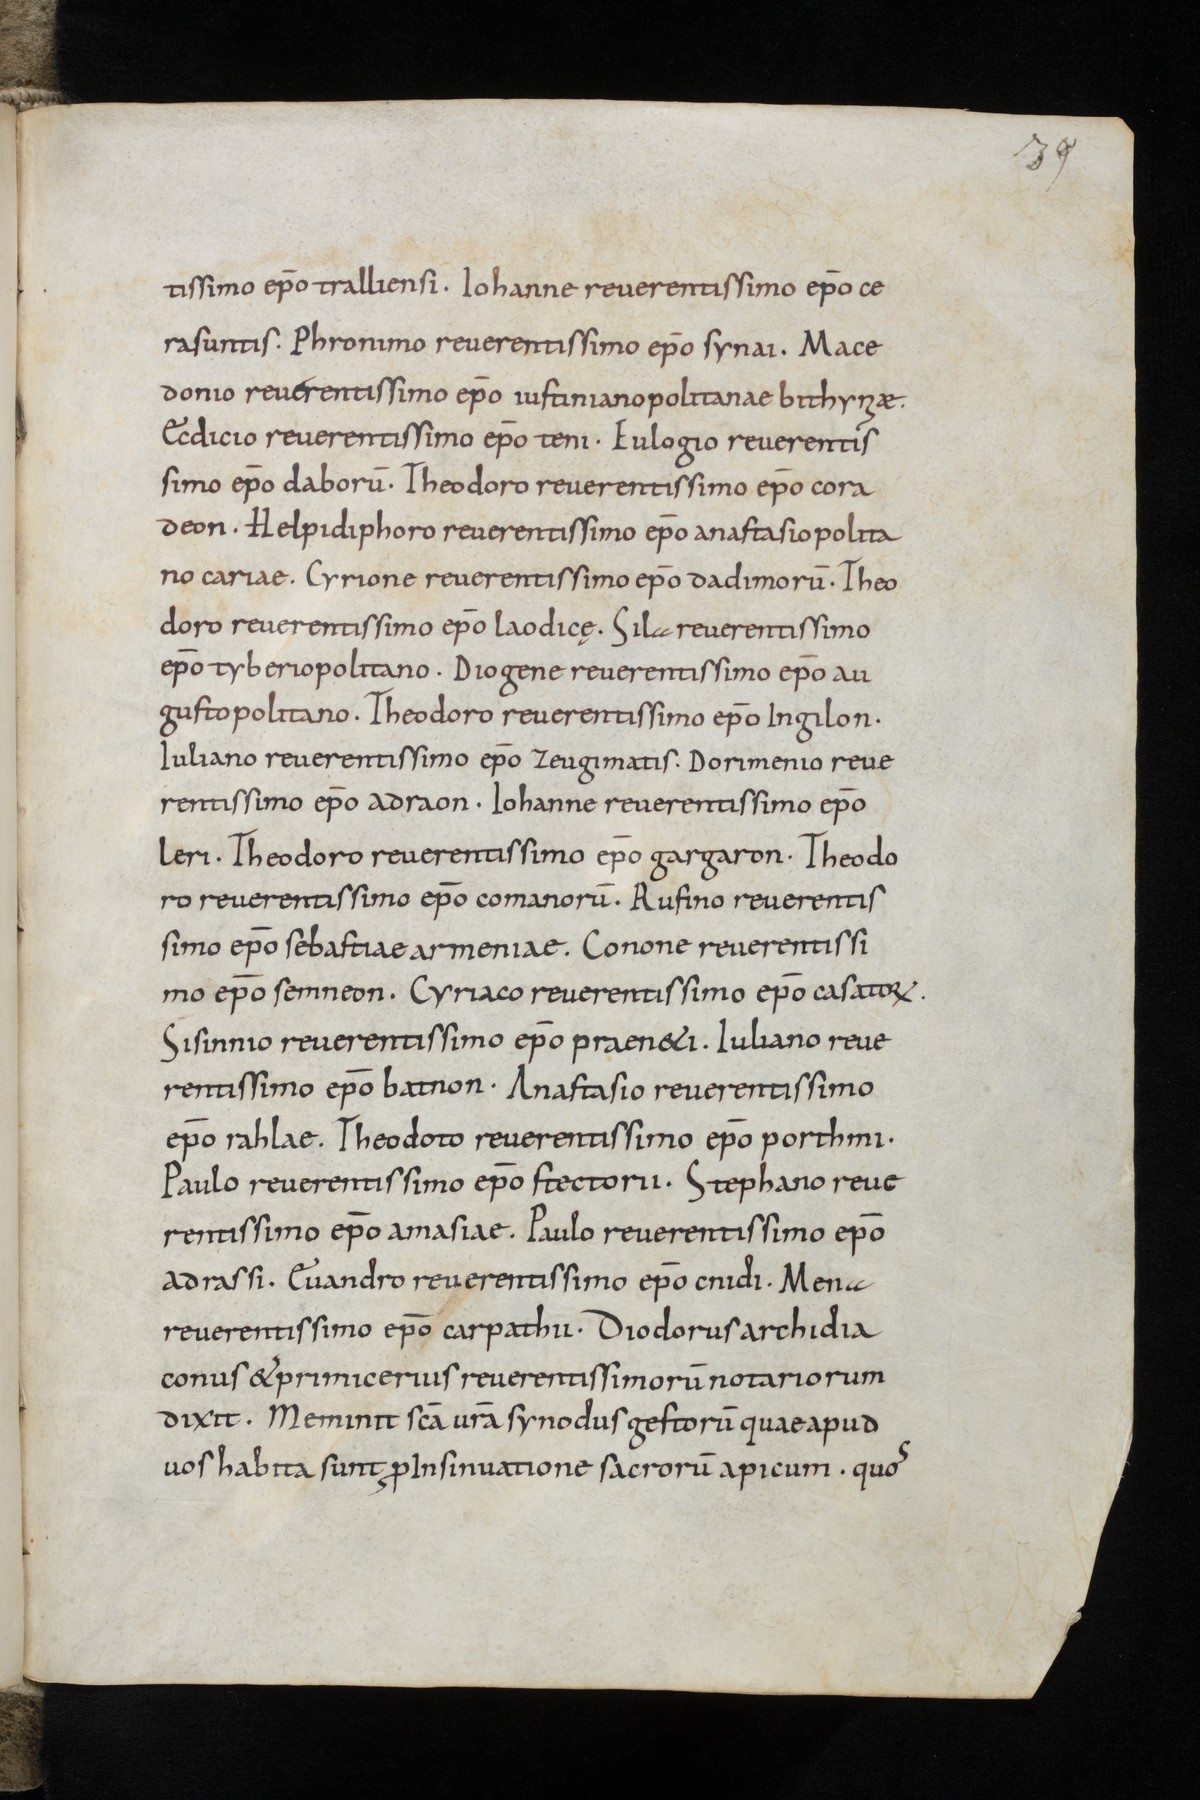 39
tissimo ep̄o tralliensi. Iohanne reuerentissimo ep̄o ce
rasuntis. Phronimo reuerentissimo ep̄o synai. Mace
donio reuerentissimo ep̄o iustinianopolitanae bithynæ.
Ecdicio reuerentissimo ep̄o teni. Eulogio reuerentis
simo ep̄o daborū. Theodoro reuerentissimo ep̄o cora
deon. Helpidiphoro reuerentissimo ep̄o anastasiopolita
no cariae. Cyrione reuerentissimo ep̄o dadimorū. Theo
doro reuerentissimo ep̄o laodicę. Sila reuerentissimo
ep̄o tyberiopolitano. Diogene reuerentissimo ep̄o au
gustopolitano. Theodoro reuerentissimo ep̄o Ingilon.
Iuliano reuerentissimo ep̄o zeugimatis. Dorimenio reue
rentissimo ep̄o adraon. Iohanne reuerentissimo ep̄o
leri. Theodoro reuerentissimo ep̄o gargaron. Theodo
ro reuerentissimo ep̄o comanorū. Rufino reuerentis
simo ep̄o sebastiae armeniae. Conone reuerentissi
mo ep̄o semneon. Cyriaco reuerentissimo ep̄o casatoꝝ.
Sisinnio reuerentissimo ep̄o praen&i. Iuliano reue
rentissimo ep̄o batnon. Anastasio reuerentissimo
ep̄o rahlae. Theodoto reuerentissimo ep̄o porthmi.
Paulo reuerentissimo ep̄o stectorii. Stephano reue
rentissimo ep̄o amasiae. Paulo reuerentissimo ep̄o
adrassi. Euandro reuerentissimo ep̄o cnidi. Mena
reuerentissimo ep̄o carpathii. Diodorus archidia
conus & primicerius reuerentissimorū notariorum
dixit. Meminit scā urā synodus gestorū quae apud
uos habita sunt ꝓ Insinuatione sacrorū apicum. quos